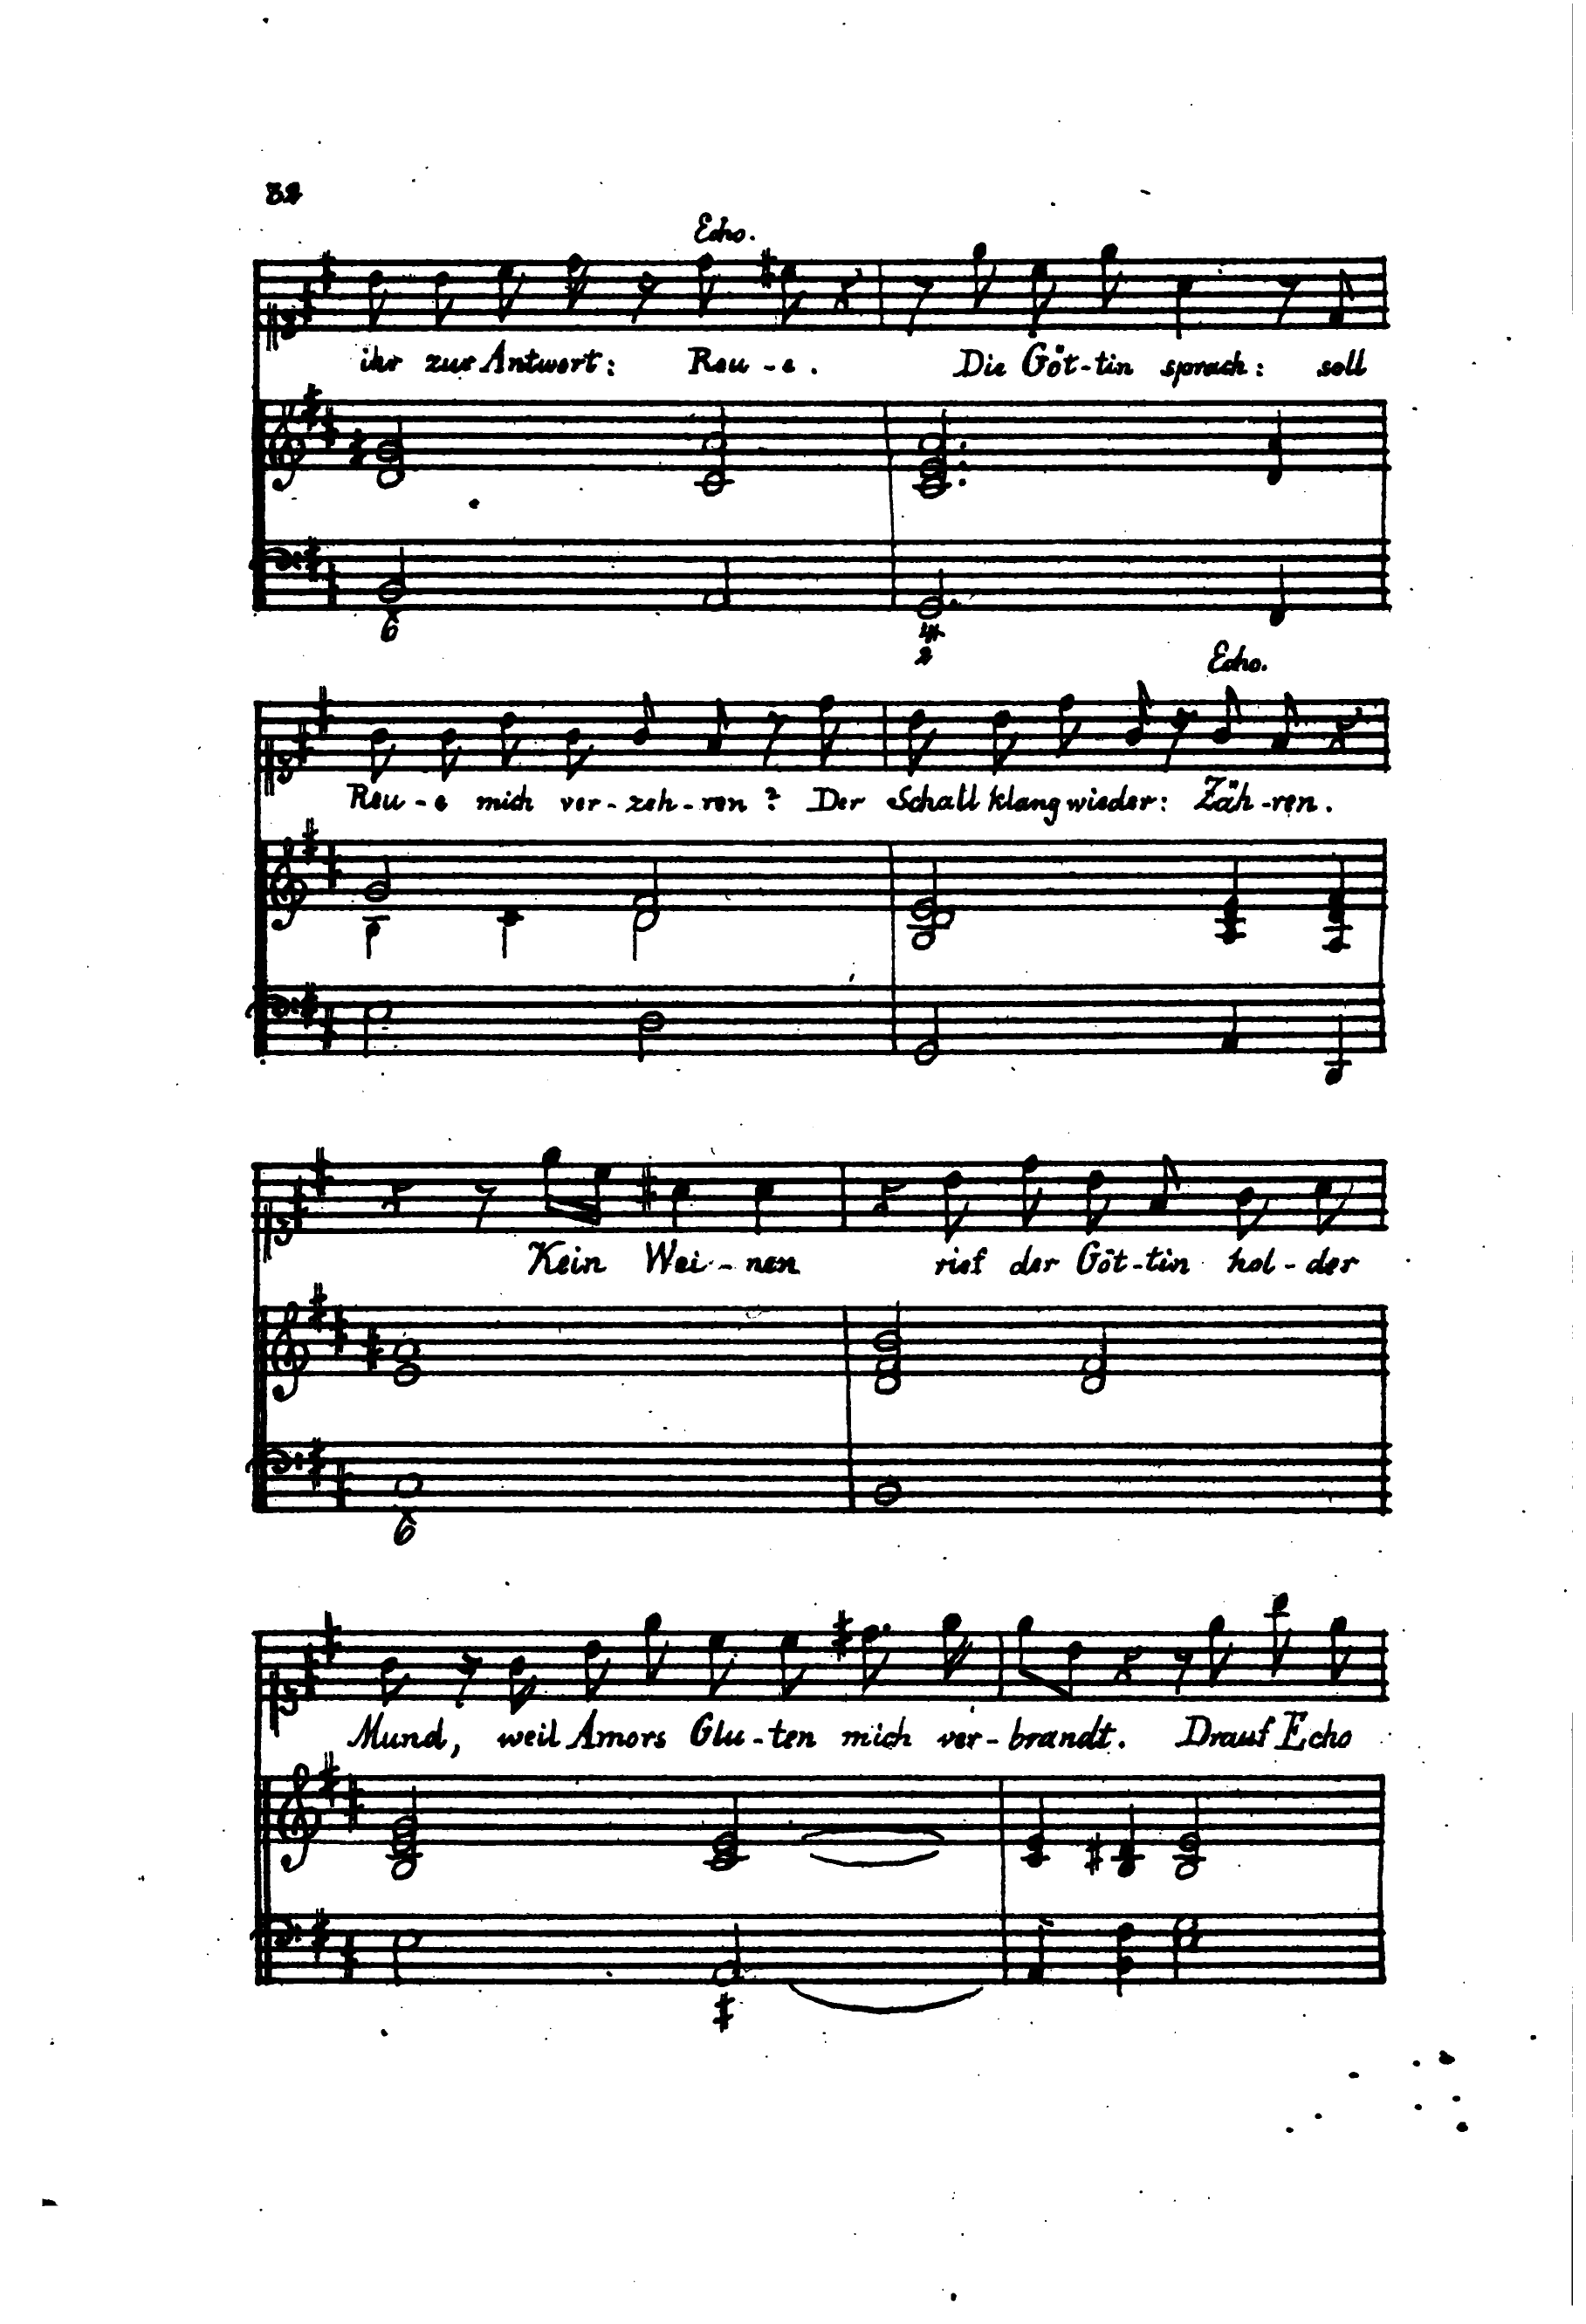 32
Echo.
ihr zur Antwort: Reu-e. Die Göt-tin sprach: soll
6
4
2
Echo.
Reu-e mich ver-zeh-ren? Der Schall klang wieder: Zäh-ren.
Kein Wei-nen rief der Göt-tin hol-der
6
Mund, weil Amors Glu-ten mich ver-brandt. Drauf Echo